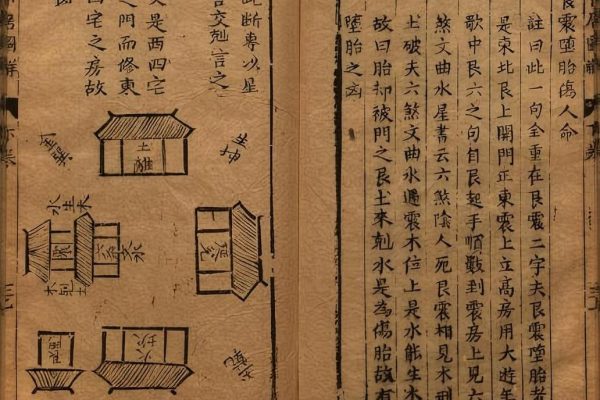 艮震墮胎傷人命
註曰此一句全重在艮震二字夫艮震墮胎者
是東北艮上開門正東震上立高房用大遊年
歌中艮六之句自艮起手順數到震房上見六
煞文曲水星書云六煞陰人死艮震相見木刑
土破夫六煞文曲水遇震木位上是水能生木
故曰胎却被門之艮土來剋水是為傷胎故有
墮胎之凶
此斷專以星
宮交剋言之
又是西四宅
之門而修東
四宅之房故
土離
水生木
震
木剋土
坎